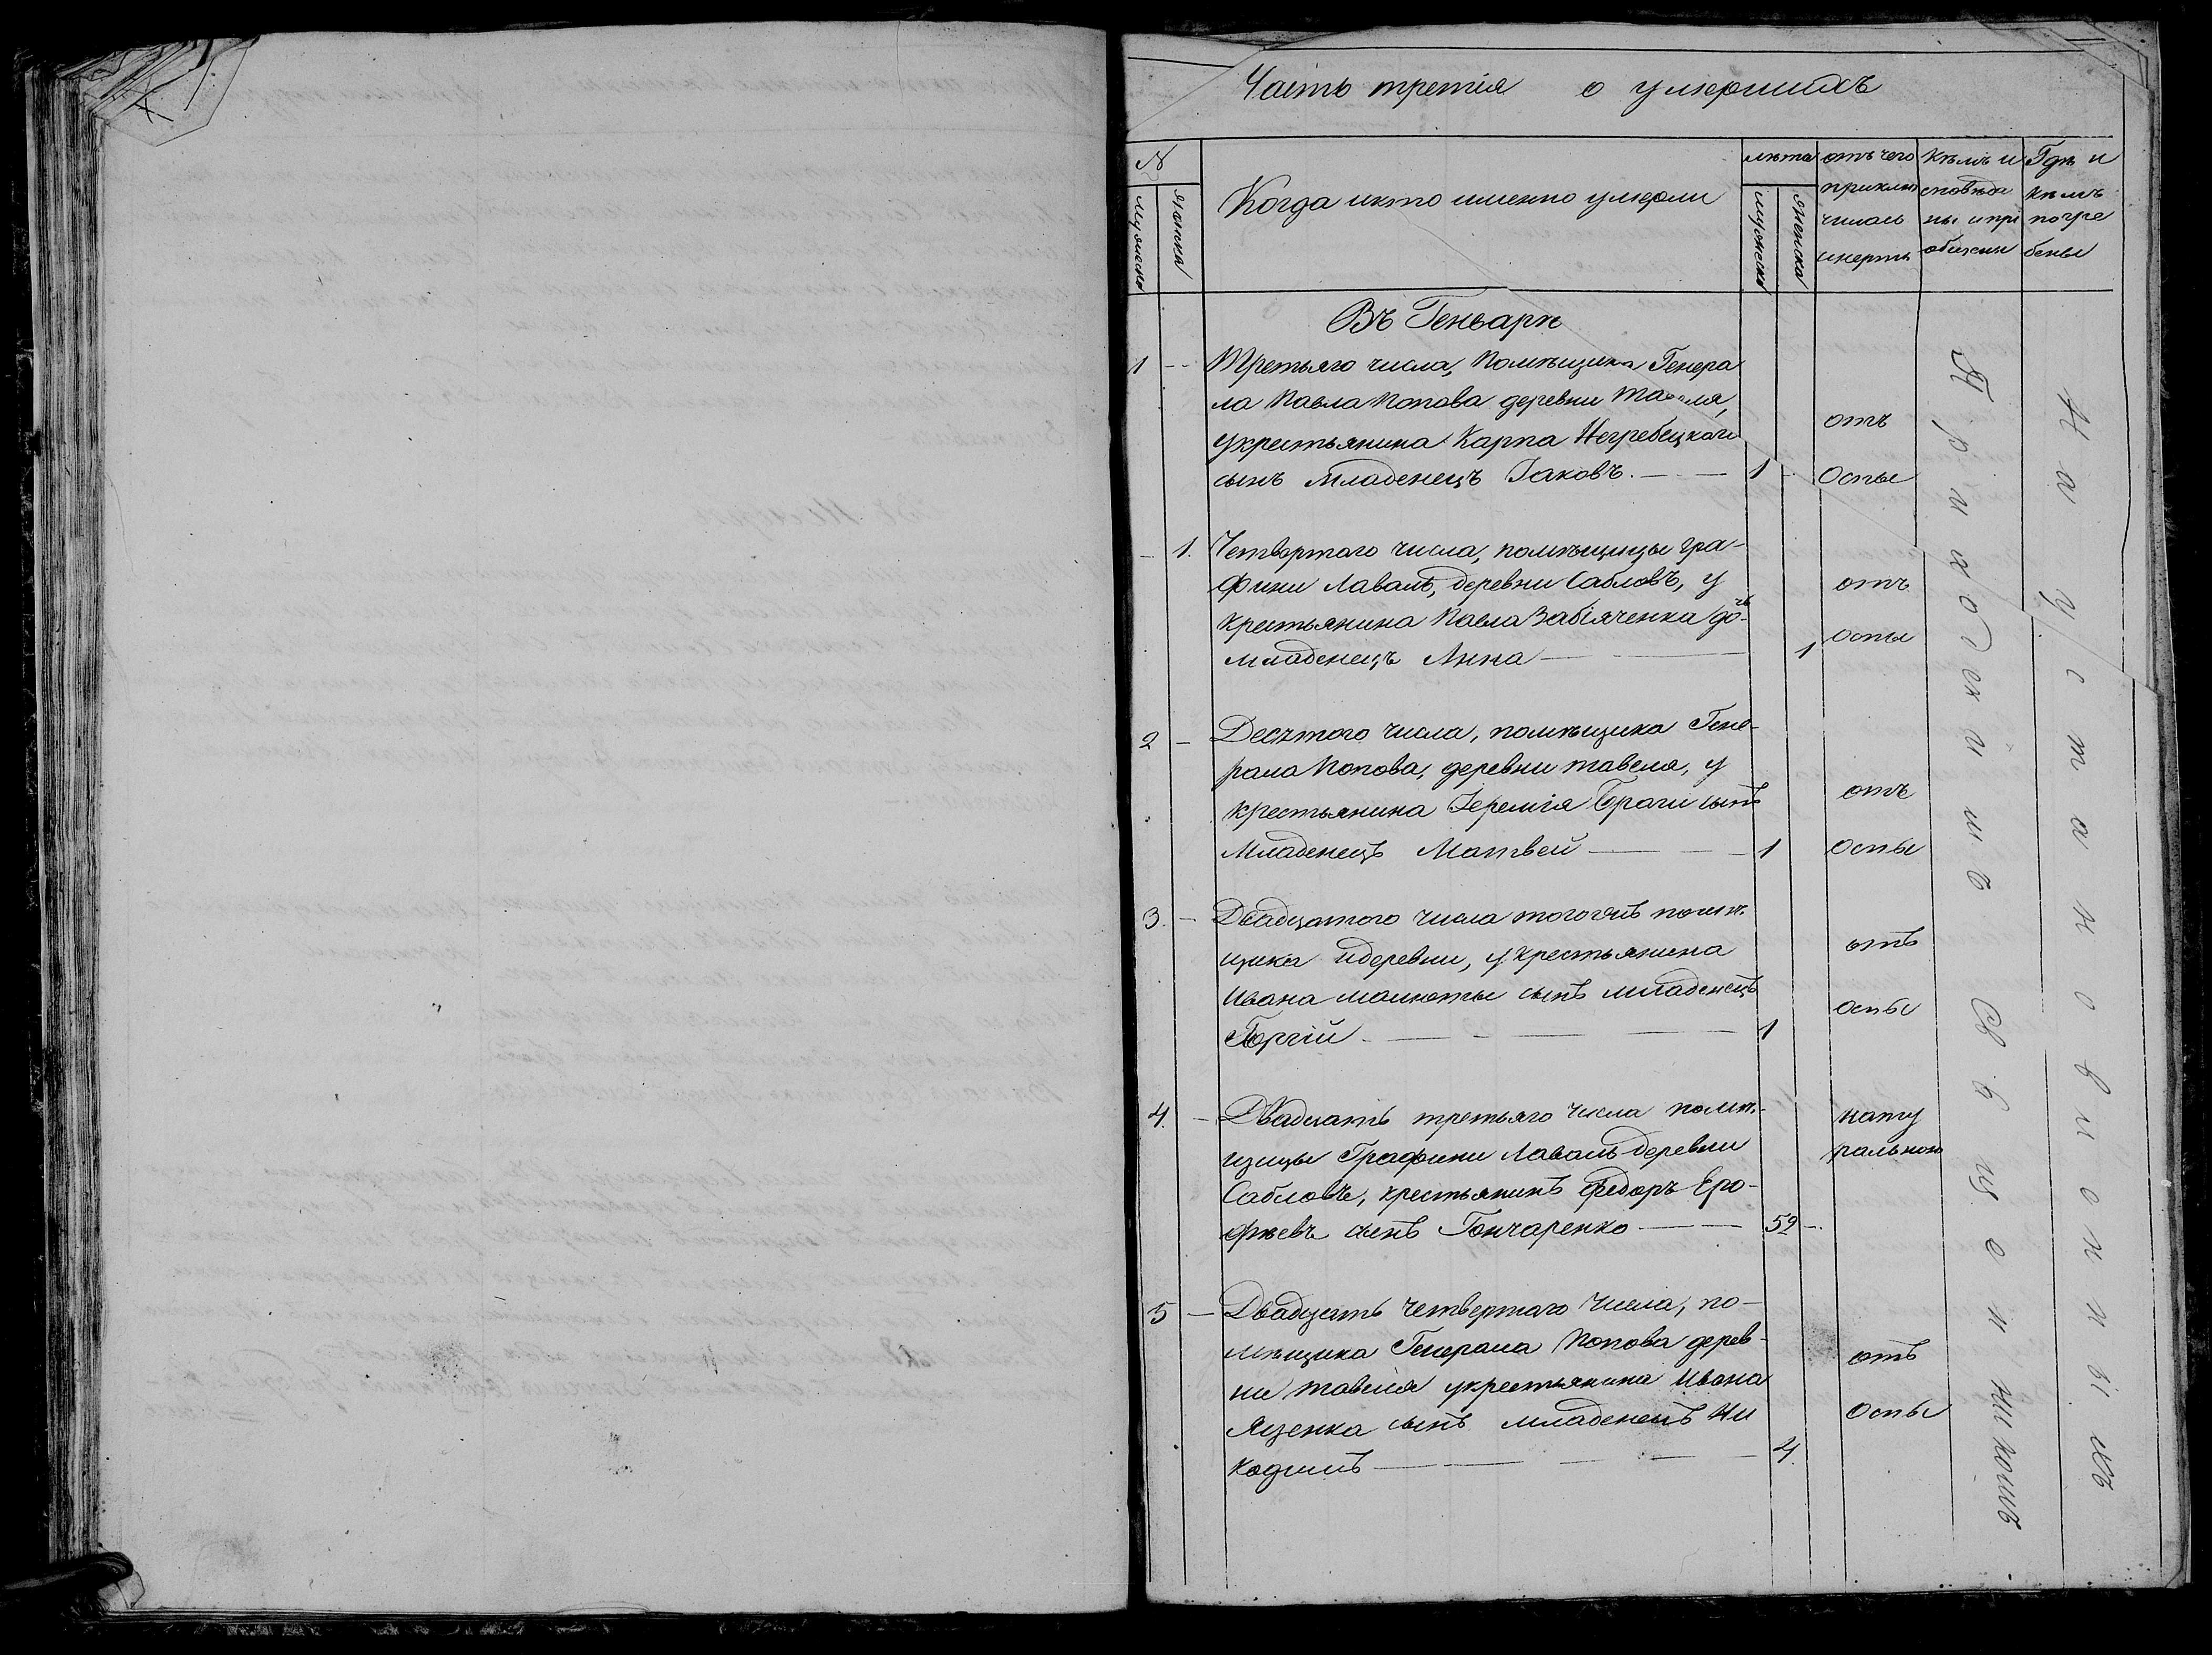 Часть третія о умершихъ
№
мужеска
женска
Когда и кто именно умерли
лѣта
мужеска
женска
отъ чего
приклю
чилась
смерть
Кѣмъ и
сповѣда
ны и прі
общены
Гдѣ и
кѣмъ
погре
бены
Въ Генварѣ
1 -- Третьяго числа, Помѣщика Генера
ла Павла Попова деревни
у крестьянина Карпа Негребецкаго отъ
сынъ Младенецъ Іаковъ. — — 1 - Оспы
- 1. Четвертаго числа, помѣщицы Гра-
фини Лаваль, деревни Сабловъ, у отъ
крестьянина Павла Забіяченка дочь
Младенецъ Анна — — 1 Оспы
2 - Десятого числа, помѣщика Гене-
рала Попова, деревни тавеля, у
крестьянина Іеремія Браги сынъ отъ
Младенецъ Матвей — — 1 Оспы
3. - Двадцатого числа тогожъ помѣ-
щика и деревни, у крестьянина отъ
Ивана малюты сынъ младенецъ
Георгій — - — 1 Оспы
4. - Двадцать третьяго числа помѣ- нату
щицы Графини Лаваль деревни ральною
Сабловъ, крестьянинъ Федоръ Еро-
фѣевъ сынъ Гончаренко — — 59 -
5 — Двадцать четвертаго числа, по-
мѣщика Генерала Попова дерев- отъ
ни тавеля у крестьянина Ивана
Яценка сынъ младенецъ Ни Оспы
кодимъ — - — 4.
Приходскимъ Священникомъ
На установленномъ